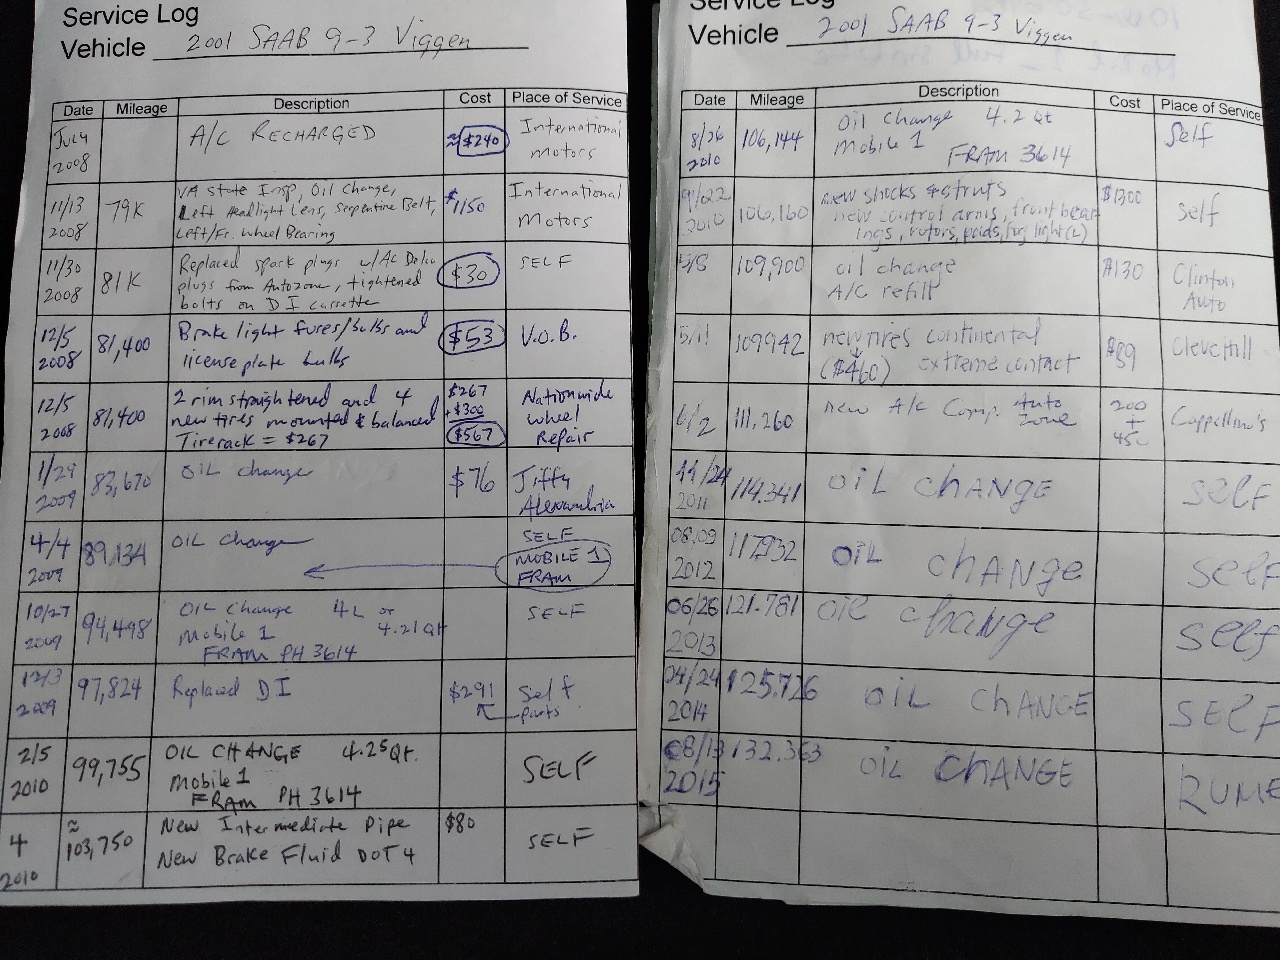 Service Log
Vehicle 2001 SAAB 9-3 Viggen
Date Mileage Description Cost Place of Service
July 2008 A/C RECHARGED ≈ $240 International Motors
11/13 2008 79K VA State Insp, Oil Change, $1150 International
Left Headlight Lens, Serpentine Belt, Motors
Left/Fr. Wheel Bearing
11/30 2008 81K Replaced spark plugs w/AC Delco $30 SELF
plugs from Autozone, tightened
bolts on DI cassette
12/5 2008 81,400 Brake light fuses/bulbs and $53 V.O.B.
license plate bulbs
12/5 2008 81,400 2 rim straightened and 4 $267 Nationwide
new tires mounted & balanced +$300 Wheel
Tirerack = $267 $567 Repair
1/29 2009 83,670 OIL change $76 Jiffy
Alexandria
4/4 2009 89,134 OIL change SELF
MOBILE 1
FRAM
10/27 2009 94,498 OIL change 4L or SELF
Mobile 1 4.21 Qt
FRAM PH 3614
12/3 2009 97,824 Replaced DI $291 Self
parts
2/5 2010 99,755 OIL CHANGE 4.25 Qt. SELF
Mobile 1
FRAM PH 3614
4 2010 ≈ 103,750 New Intermediate Pipe $80 SELF
New Brake Fluid DOT 4
Service Log
Vehicle 2001 SAAB 9-3 Viggen
Date Mileage Description Cost Place of Service
8/26 2010 106,144 Oil change 4.2 Qt Self
Mobile 1
FRAM 3614
9/22 2010 106,160 new shocks & struts $1300 Self
new control arms, front bear
ings, rotors, pads, fog light (L)
5/8 109,900 oil change $130 Clinton
A/C refill Auto
5/11 109942 new tires continental $89 Cleve Hill
($460) extreme contact
6/2 111,260 new A/C Comp. Auto Zone 200 + 450 Cappellino's
11/24 2011 114.341 OIL CHANGE SELF
08,09 2012 117932 OIL CHANGE SELF
06/26 2013 121.781 OIL CHANGE SELF
04/24 2014 125.726 OIL CHANGE SELF
08/13 2015 132.363 OIL CHANGE